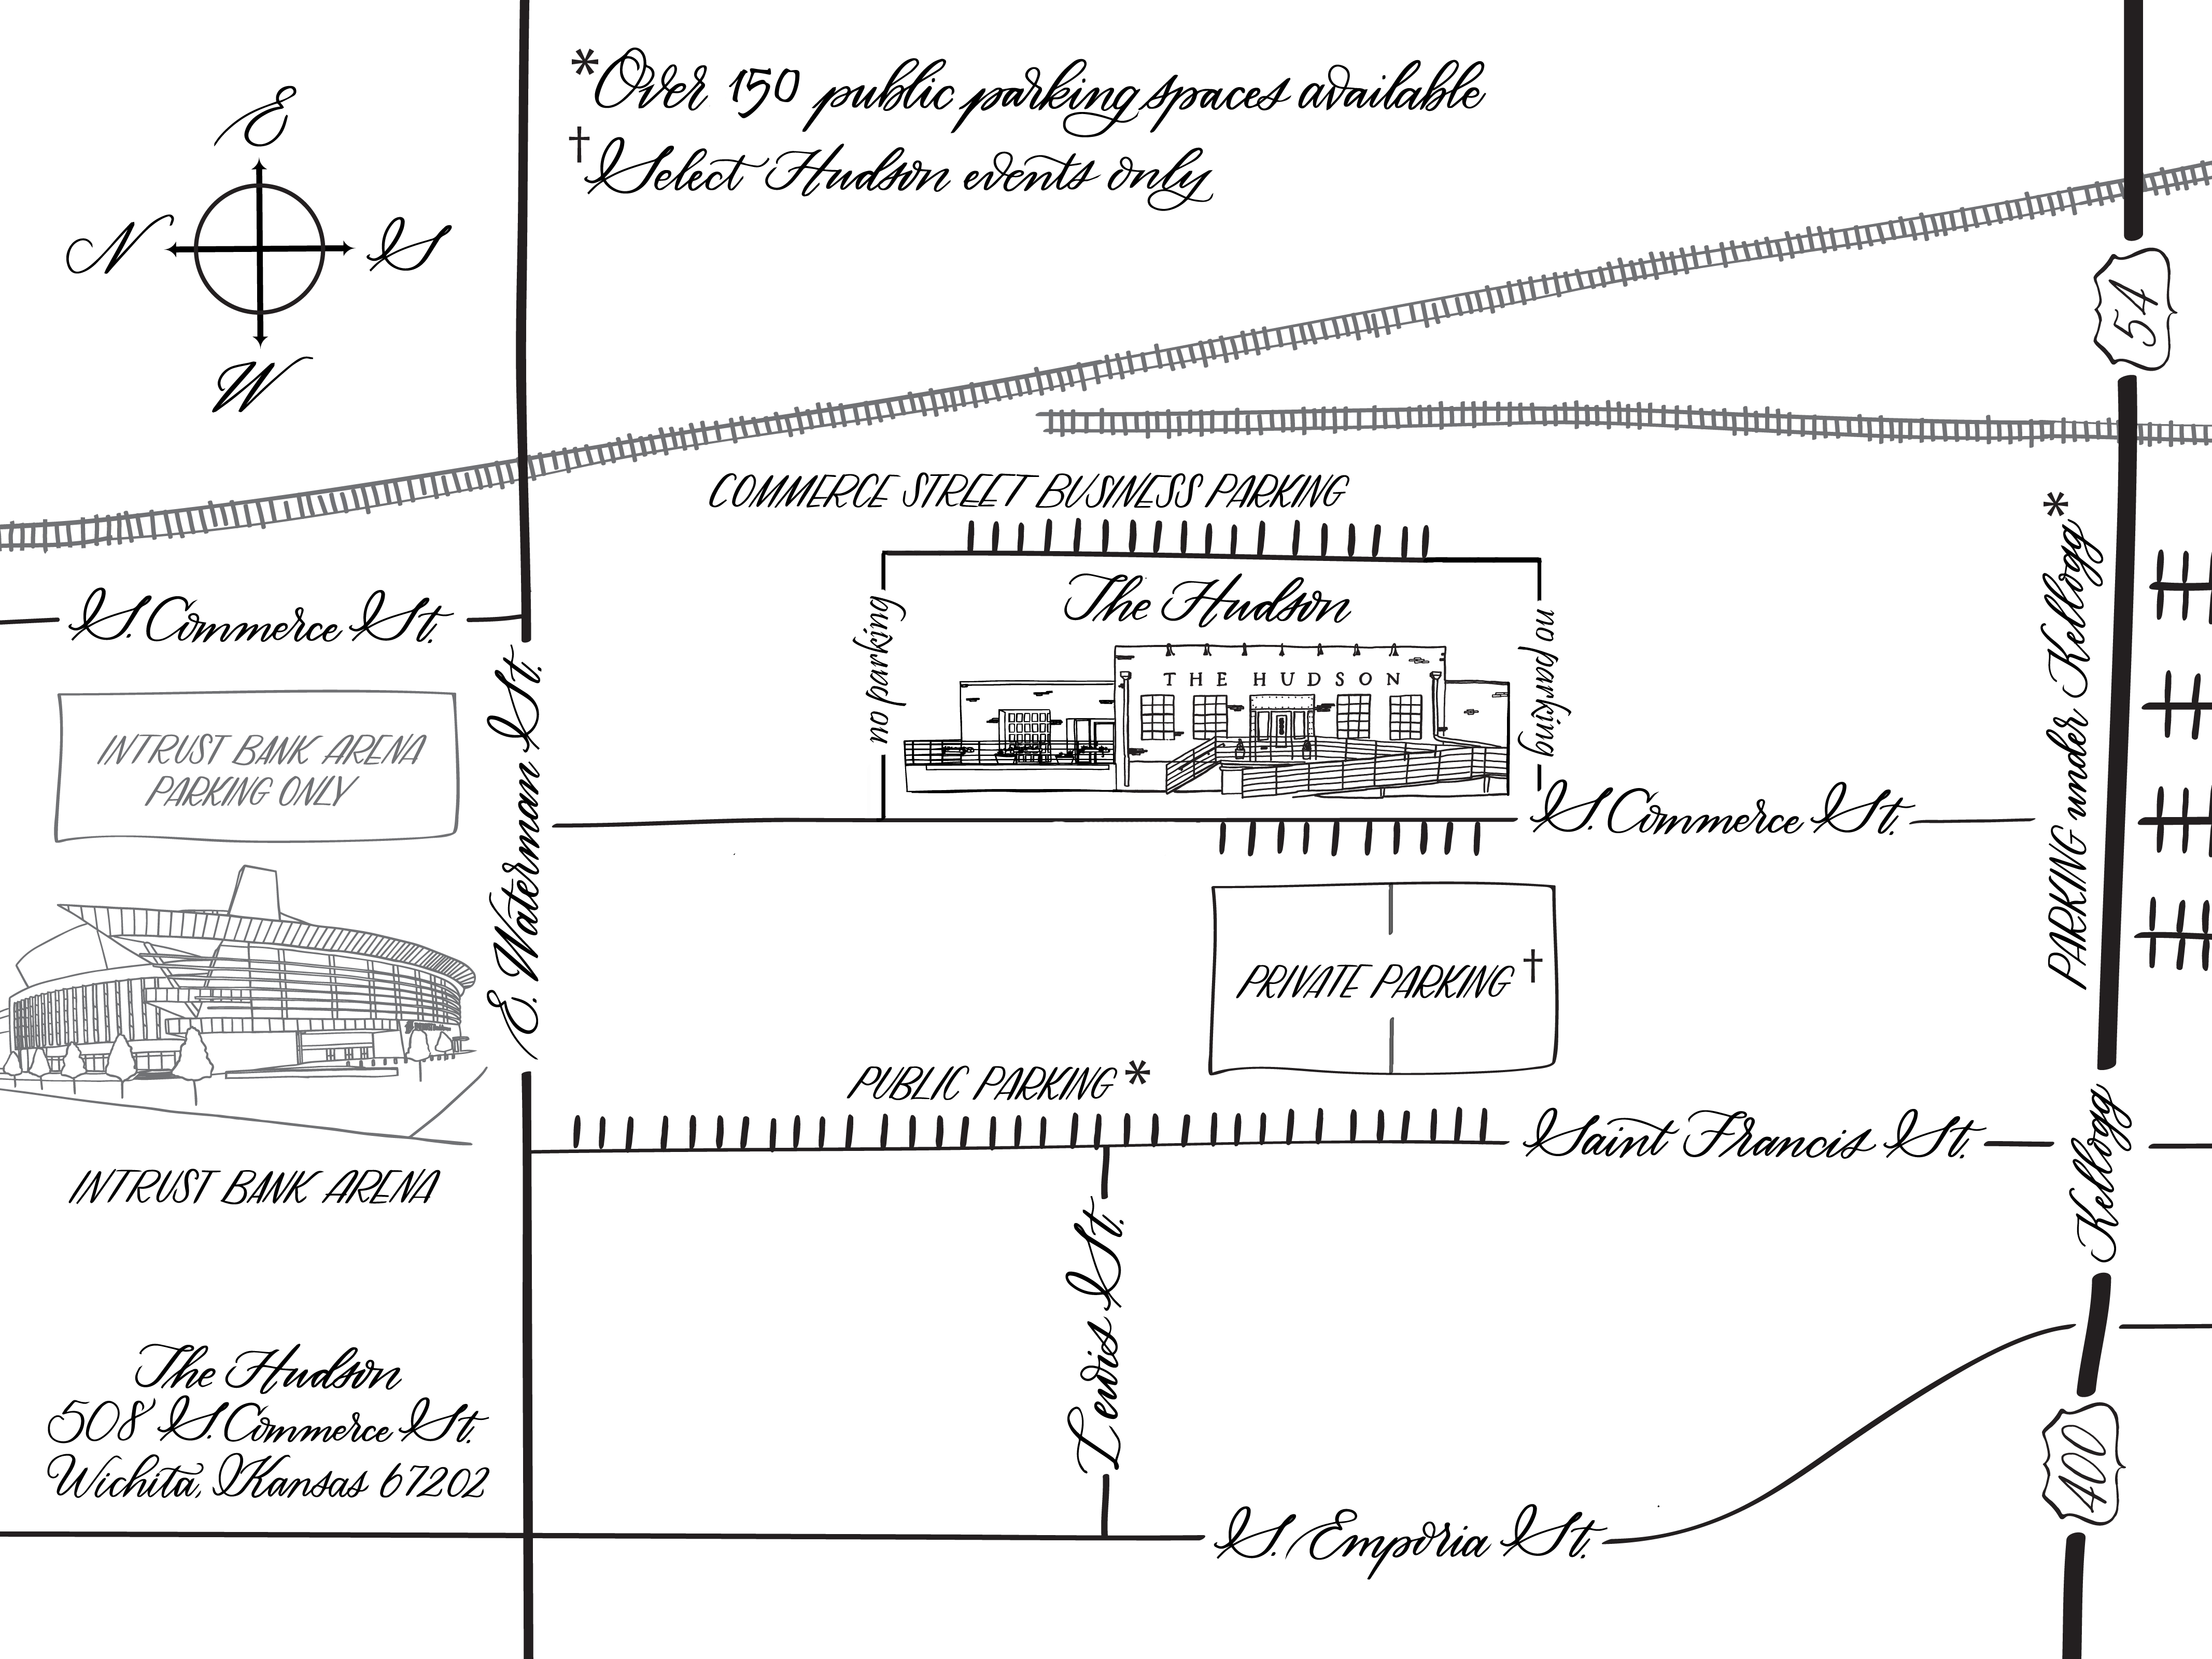 *Over 150 public parking spaces available
†Select Hudson events only
E
N
S
W
54
COMMERCE STREET BUSINESS PARKING
The Hudson
no parking
no parking
THE HUDSON
S. Commerce St.
INTRUST BANK ARENA
PARKING ONLY
E. Waterman St.
S. Commerce St.
PARKING under Kellogg*
PRIVATE PARKING†
PUBLIC PARKING*
Saint Francis St.
Kellogg
INTRUST BANK ARENA
Lewis St.
The Hudson
508 S. Commerce St.
Wichita, Kansas 67202
400
S. Emporia St.